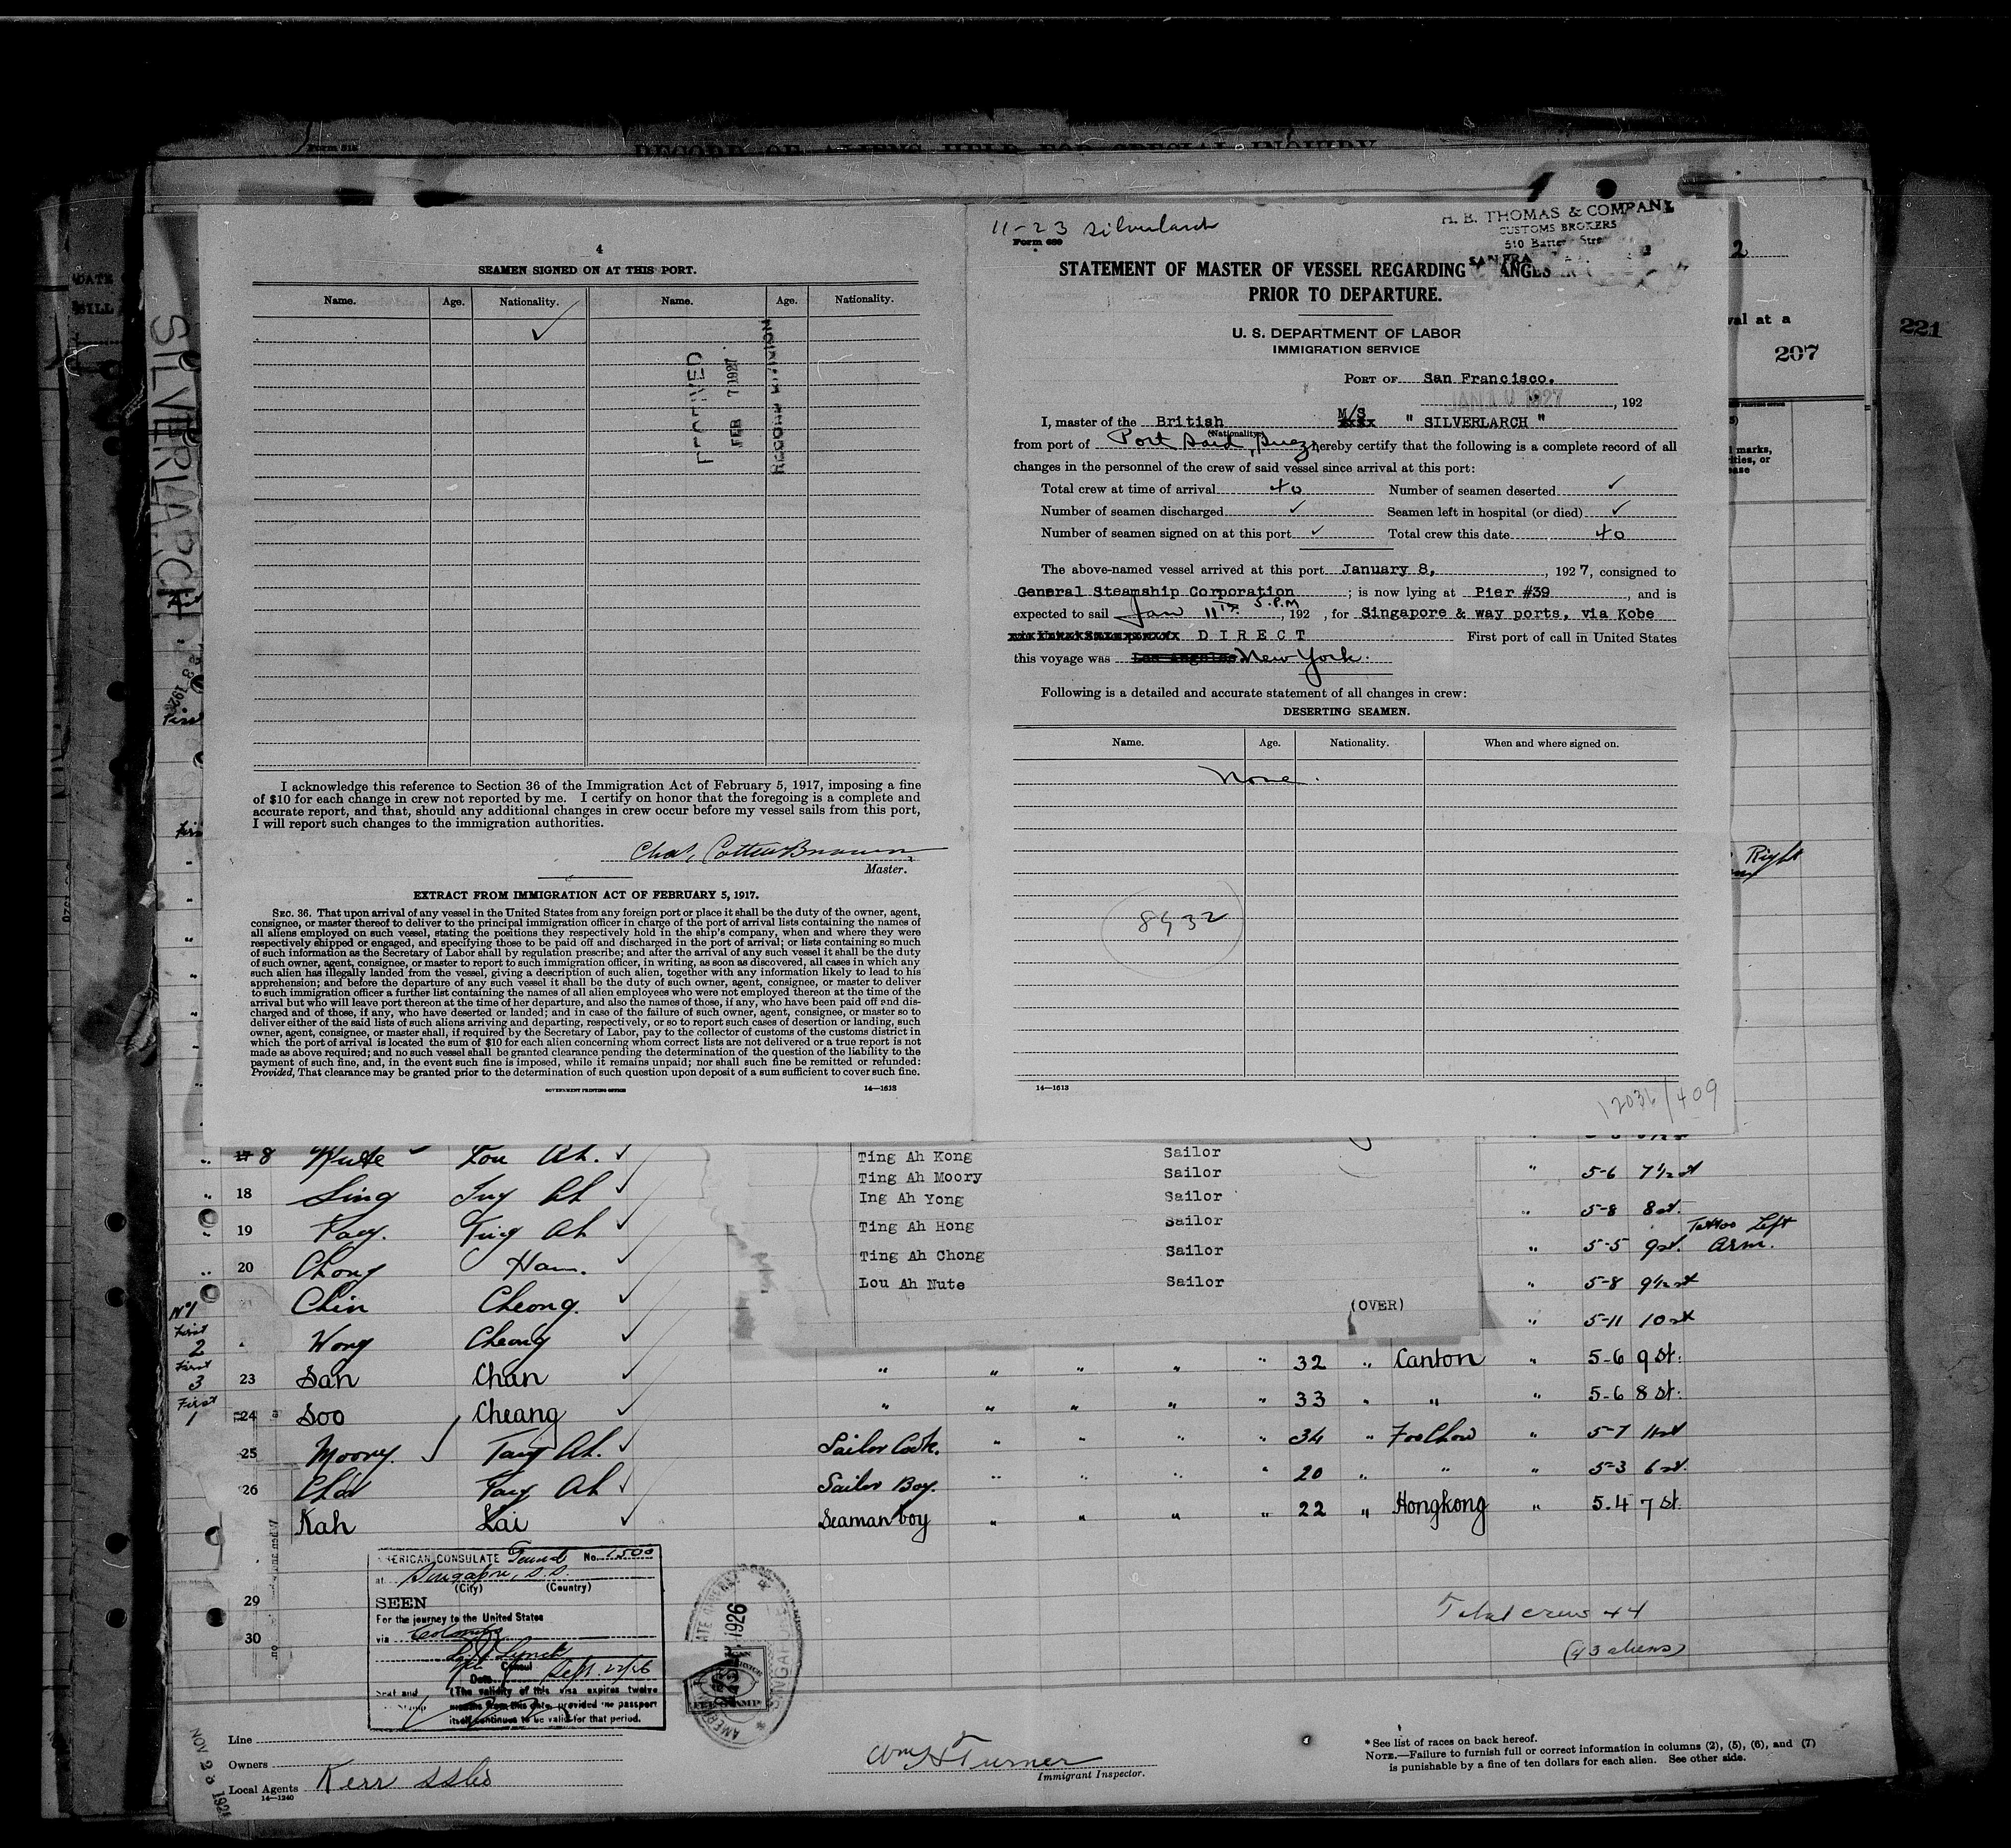 Form 51
RECORD OF ALIENS HELD FOR SPECIAL INQUIRY
DATE
221
2
val at a
207
marks,
ities, or
ease
Right
SILVERLARCH
4
SEAMEN SIGNED ON AT THIS PORT.
Name. Age. Nationality. Name. Age. Nationality.
RECEIVED
FEB 7 1927
RECORD DIVISION
I acknowledge this reference to Section 36 of the Immigration Act of February 5, 1917, imposing a fine
of $10 for each change in crew not reported by me. I certify on honor that the foregoing is a complete and
accurate report, and that, should any additional changes in crew occur before my vessel sails from this port,
I will report such changes to the immigration authorities.
Chas. Cotten Brown
Master.
EXTRACT FROM IMMIGRATION ACT OF FEBRUARY 5, 1917.
SEC. 36. That upon arrival of any vessel in the United States from any foreign port or place it shall be the duty of the owner, agent,
consignee, or master thereof to deliver to the principal immigration officer in charge of the port of arrival lists containing the names of
all aliens employed on such vessel, stating the positions they respectively hold in the ship's company, when and where they were
respectively shipped or engaged, and specifying those to be paid off and discharged in the port of arrival; or lists containing so much
of such information as the Secretary of Labor shall by regulation prescribe; and after the arrival of any such vessel it shall be the duty
of such owner, agent, consignee, or master to report to such immigration officer, in writing, as soon as discovered, all cases in which any
such alien has illegally landed from the vessel, giving a description of such alien, together with any information likely to lead to his
apprehension; and before the departure of any such vessel it shall be the duty of such owner, agent, consignee, or master to deliver
to such immigration officer a further list containing the names of all alien employees who were not employed thereon at the time of the
arrival but who will leave port thereon at the time of her departure, and also the names of those, if any, who have been paid off and dis-
charged and of those, if any, who have deserted or landed; and in case of the failure of such owner, agent, consignee, or master so to
deliver either of the said lists of such aliens arriving and departing, respectively, or so to report such cases of desertion or landing, such
owner, agent, consignee, or master shall, if required by the Secretary of Labor, pay to the collector of customs of the customs district in
which the port of arrival is located the sum of $10 for each alien concerning whom correct lists are not delivered or a true report is not
made as above required; and no such vessel shall be granted clearance pending the determination of the question of the liability to the
payment of such fine, and, in the event such fine is imposed, while it remains unpaid; nor shall such fine be remitted or refunded:
Provided, That clearance may be granted prior to the determination of such question upon deposit of a sum sufficient to cover such fine.
GOVERNMENT PRINTING OFFICE
14—1613
11-23 Silverlarch
Form 689
H. B. THOMAS & COMPANY
CUSTOMS BROKERS
510 Batter Stre
SAN FRA
STATEMENT OF MASTER OF VESSEL REGARDING CHANGES IN
PRIOR TO DEPARTURE.
U. S. DEPARTMENT OF LABOR
IMMIGRATION SERVICE
PORT OF San Francisco.
JAN 10 1927, 192
I, master of the British M/S " SILVERLARCH "
(Nationality)
from port of Port Said, Suez, hereby certify that the following is a complete record of all
changes in the personnel of the crew of said vessel since arrival at this port:
Total crew at time of arrival 40 Number of seamen deserted ✓
Number of seamen discharged ✓ Seamen left in hospital (or died) ✓
Number of seamen signed on at this port ✓ Total crew this date 40
The above-named vessel arrived at this port January 8, , 1927, consigned to
General Steamship Corporation ; is now lying at Pier #39 , and is
expected to sail Jan 11th 5 P.M , 192 , for Singapore & way ports, via Kobe
DIRECT First port of call in United States
this voyage was Los Angeles New York.
Following is a detailed and accurate statement of all changes in crew:
DESERTING SEAMEN.
Name. Age. Nationality. When and where signed on.
None.
8932
14—1613
12036/409
8 Nute Lou Ah. ✓
18 Ling Ing Ah ✓
19 Ting Ah ✓
20 Chong Ham. ✓
Nº1 Chin Cheong. ✓
First 2 Wong Cheong ✓
First 3 23 San Chan ✓ " " " " " 32 " Canton " 5-6 9 st.
First 1 24 Soo Cheang ✓ " " " " " 33 " " " 5-6 8 st.
25 Moory. Tang Ah. ✓ Sailor Cook. " " " " 34 " FooChow " 5-7 11st
26 Choi Tang Ah ✓ Sailor Boy. " " " " 20 " " " 5-3 6 st.
Kah Lai ✓ Seaman boy " " " " 22 " Hongkong " 5.4 7 st.
Ting Ah Kong Sailor
Ting Ah Moory Sailor
Ing Ah Yong Sailor
Ting Ah Hong Sailor
Ting Ah Chong Sailor
Lou Ah Nute Sailor
(OVER)
" 5-6 7½st
" 5-8 8st.
" 5-5 9st. Tattoo Left Arm.
" 5-8 9½st
" 5-11 10st
29
30
AMERICAN CONSULATE General No. 1500
at Singapore, S.S.
(City) (Country)
SEEN
For the journey to the United States
via Colombo
Lynch
Consul
Date Sept. 22/26
Seal and Stamp
(The validity of this visa expires twelve
months from this date, provided the passport
itself continues to be valid for that period.
1926
FEE STAMP
Total crew 44
(43 aliens)
NOV 23 192
Line
Owners
Local Agents Kerr SSLis
14—1240
Wm H Turner
Immigrant Inspector.
* See list of races on back hereof.
NOTE.—Failure to furnish full or correct information in columns (2), (5), (6), and (7)
is punishable by a fine of ten dollars for each alien. See other side.